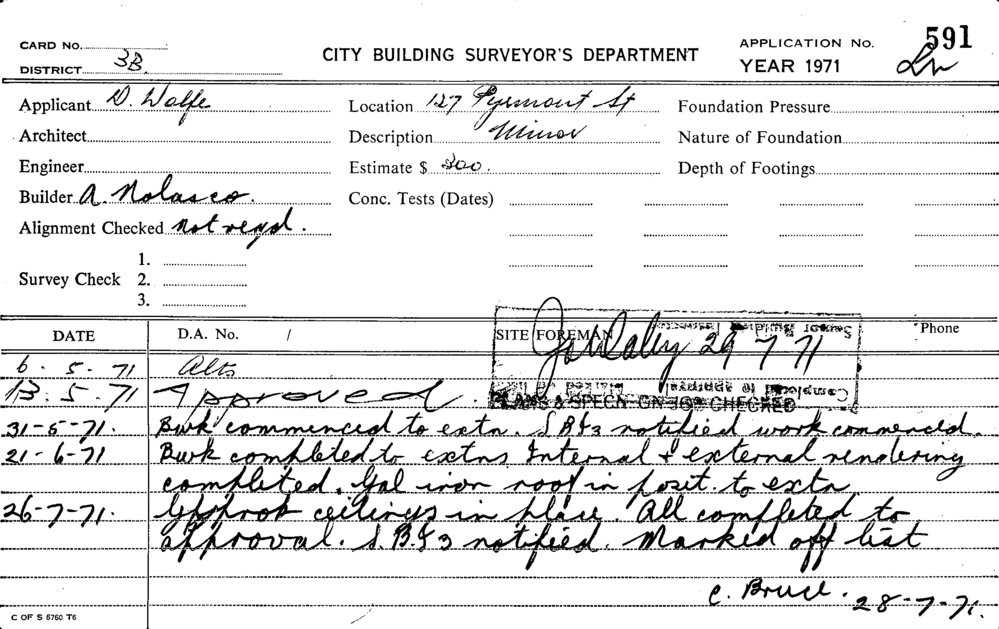 CARD No.
DISTRICT 3B.
CITY BUILDING SURVEYOR'S DEPARTMENT
APPLICATION No. 591
YEAR 1971
Applicant D. Wolfe
Location 127 Pyrmont St
Foundation Pressure
Architect
Description Minor
Nature of Foundation
Engineer
Estimate $ 300.
Depth of Footings
Builder A. Nolasco.
Conc. Tests (Dates)
Alignment Checked Not reqd.
Survey Check 1.
2.
3.
DATE D.A. No. / SITE FOREMAN Phone
Senior Building Inspector
29 7 71
Completed to approval
Marked off list
PLANS & SPECN ON JOB CHECKED
6. 5. 71 Alts
13. 5. 71 Approved.
31-5-71. Bwk commenced to extn. S.B.I.3 notified work commenced.
21-6-71 Bwk completed to extns Internal & external rendering
completed. Gal iron roof in posit. to extn
26-7-71. Gyprock ceilings in place. All completed to
approval. S.B.I.3 notified. Marked off list
C. Bruce. 28-7-71.
C OF S 6760 T6